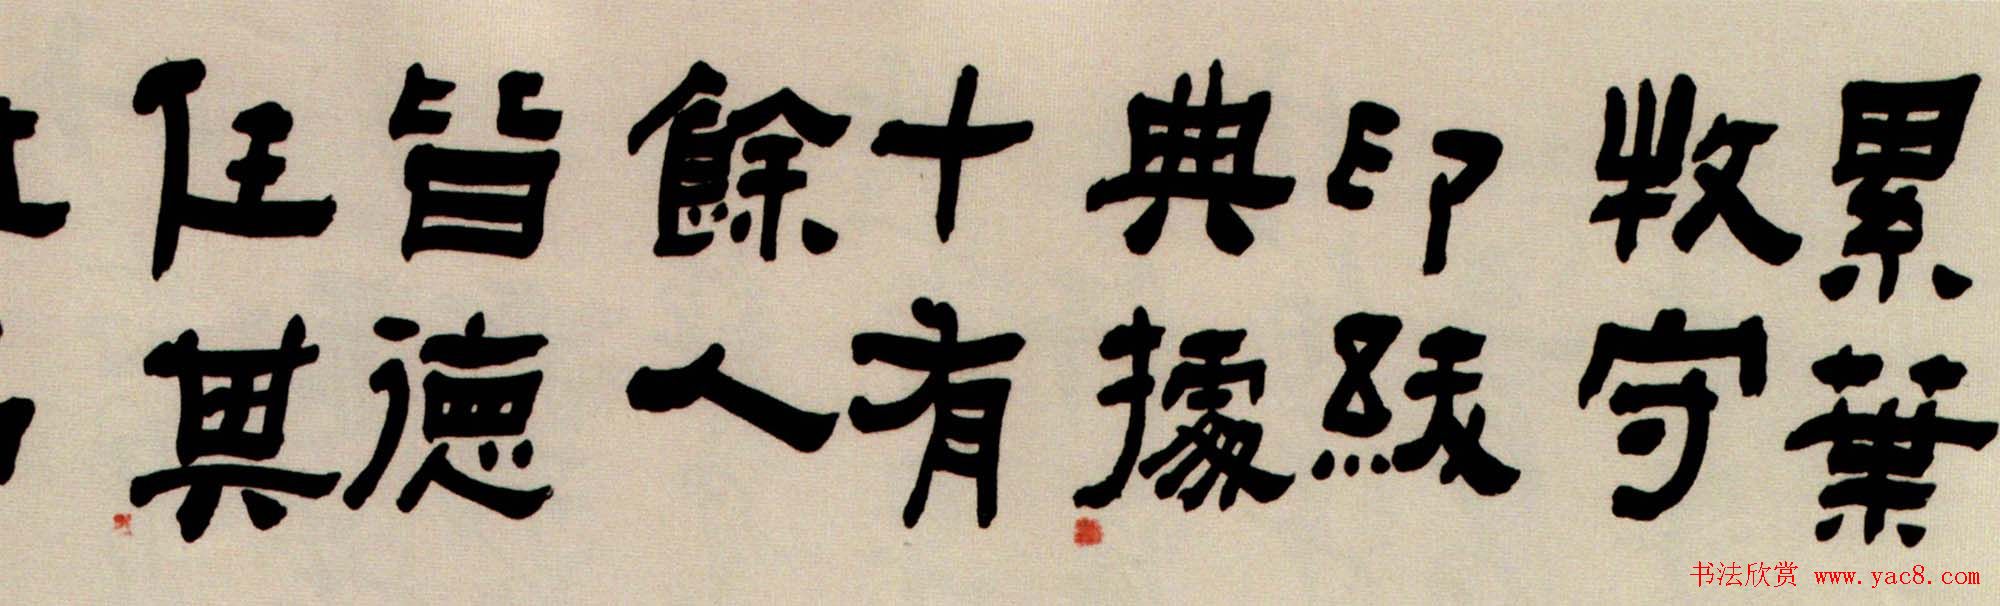 累葉
牧守
印紱
典據
十有
餘人
皆德
任其
书法欣赏 www.yac8.com